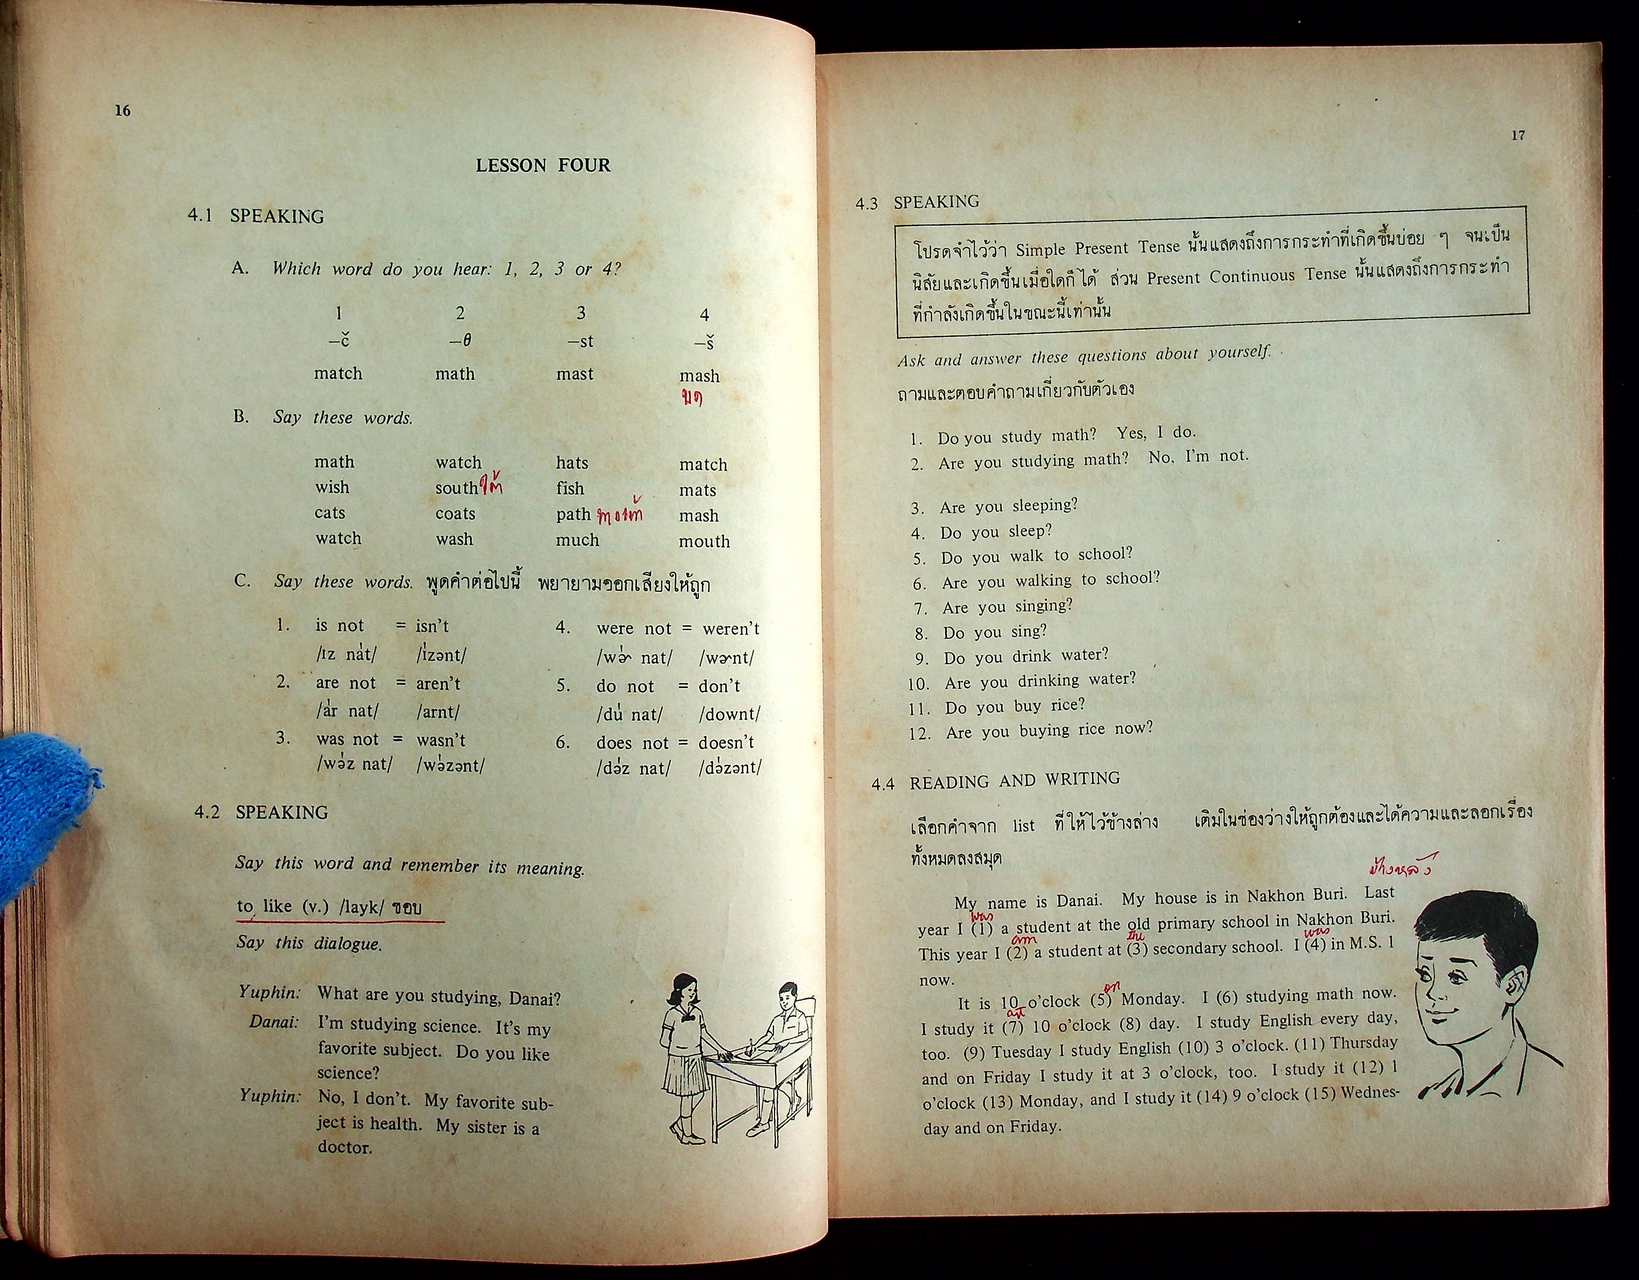 16
LESSON FOUR
4.1 SPEAKING
A. Which word do you hear: 1, 2, 3 or 4?
1 2 3 4
–č –θ –st –š
match math mast mash
บด
B. Say these words.
math watch hats match
wish south ใต้ fish mats
cats coats path mash
watch wash much mouth
C. Say these words. พูดคำต่อไปนี้ พยายามออกเสียงให้ถูก
1. is not = isn't 4. were not = weren't
/ɪz nát/ /ɪ́zənt/ /wɚ́ nat/ /wɚnt/
2. are not = aren't 5. do not = don't
/ár nat/ /arnt/ /dú nat/ /downt/
3. was not = wasn't 6. does not = doesn't
/wə́z nat/ /wə́zənt/ /də́z nat/ /də́zənt/
4.2 SPEAKING
Say this word and remember its meaning.
to like (v.) /layk/ ชอบ
Say this dialogue.
Yuphin: What are you studying, Danai?
Danai: I'm studying science. It's my
favorite subject. Do you like
science?
Yuphin: No, I don't. My favorite sub-
ject is health. My sister is a
doctor.
17
4.3 SPEAKING
โปรดจำไว้ว่า Simple Present Tense นั้นแสดงถึงการกระทำที่เกิดขึ้นบ่อย ๆ จนเป็น
นิสัยและเกิดขึ้นเมื่อใดก็ได้ ส่วน Present Continuous Tense นั้นแสดงถึงการกระทำ
ที่กำลังเกิดขึ้นในขณะนี้เท่านั้น
Ask and answer these questions about yourself.
ถามและตอบคำถามเกี่ยวกับตัวเอง
1. Do you study math? Yes, I do.
2. Are you studying math? No, I'm not.
3. Are you sleeping?
4. Do you sleep?
5. Do you walk to school?
6. Are you walking to school?
7. Are you singing?
8. Do you sing?
9. Do you drink water?
10. Are you drinking water?
11. Do you buy rice?
12. Are you buying rice now?
4.4 READING AND WRITING
เลือกคำจาก list ที่ให้ไว้ข้างล่าง เติมในช่องว่างให้ถูกต้องและได้ความและลอกเรื่อง
ทั้งหมดลงสมุด
ข้างหลัง
My name is Danai. My house is in Nakhon Buri. Last
was
year I (1) a student at the old primary school in Nakhon Buri.
am the was
This year I (2) a student at (3) secondary school. I (4) in M.S. 1
now.
on
It is 10 o'clock (5) Monday. I (6) studying math now.
at
I study it (7) 10 o'clock (8) day. I study English every day,
too. (9) Tuesday I study English (10) 3 o'clock. (11) Thursday
and on Friday I study it at 3 o'clock, too. I study it (12) 1
o'clock (13) Monday, and I study it (14) 9 o'clock (15) Wednes-
day and on Friday.